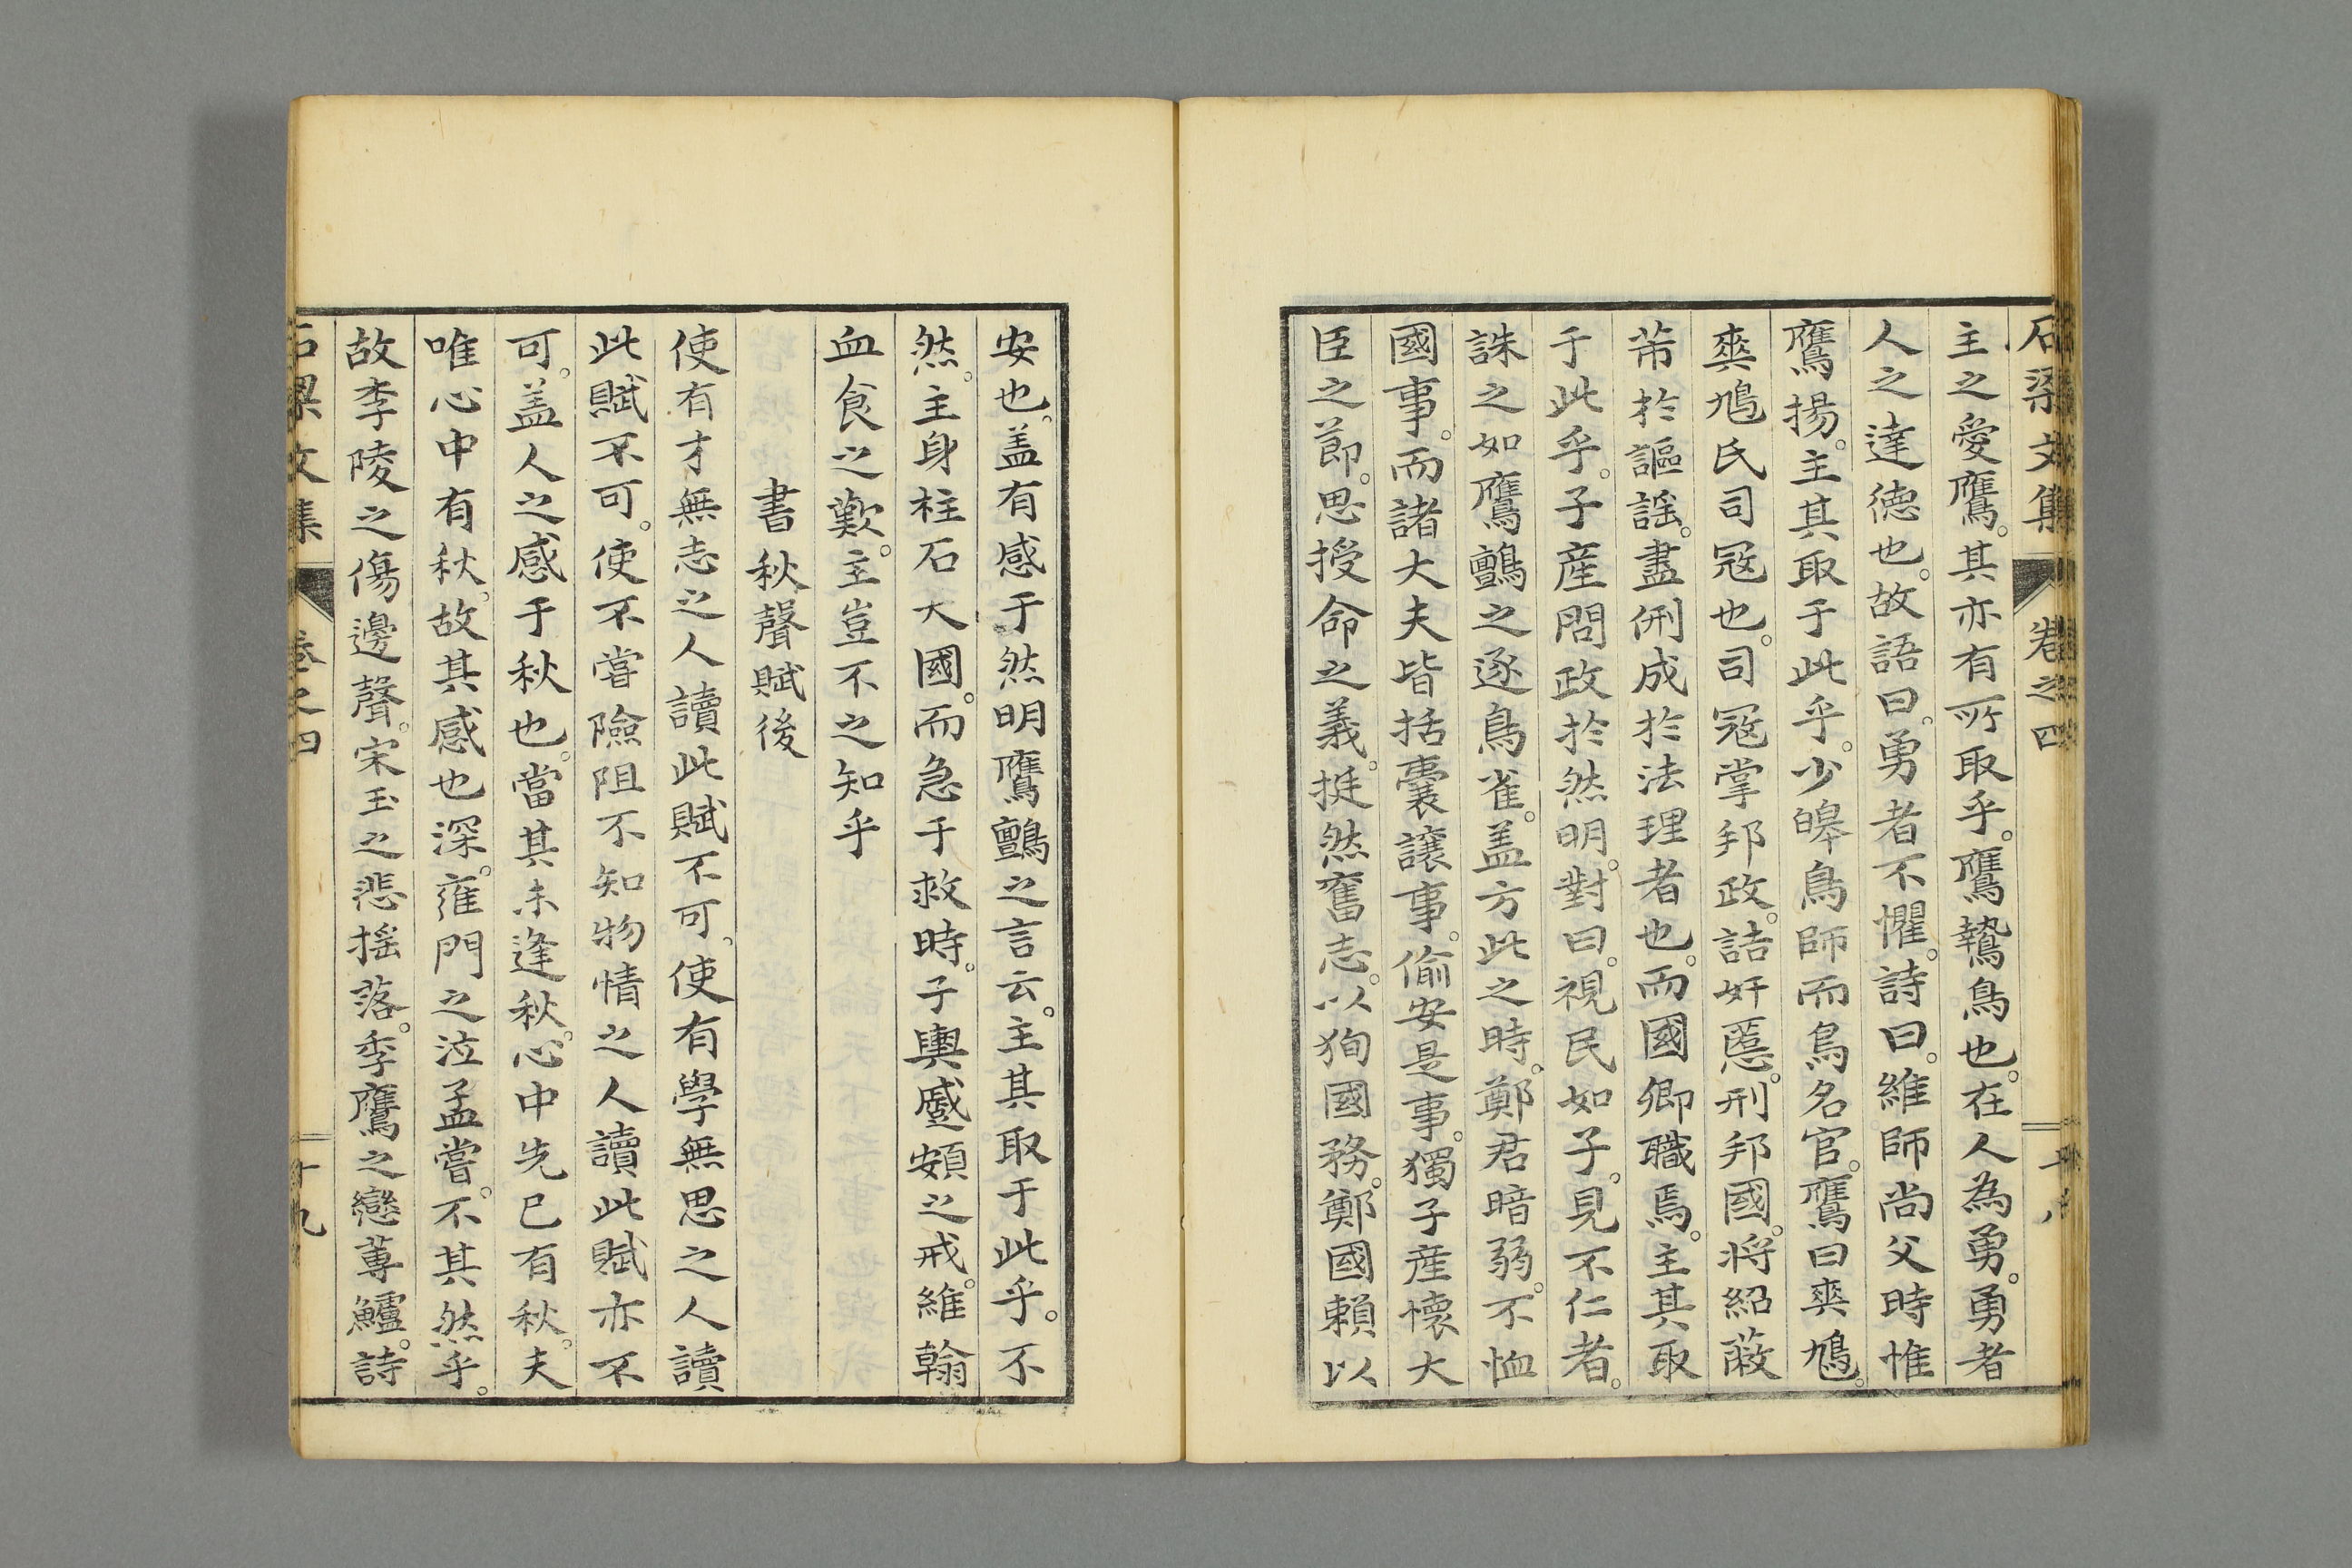 石梁文集 卷之四
主之愛鷹。其亦有所取乎。鷹鷙鳥也。在人為勇。勇者
人之達德也。故語曰。勇者不懼。詩曰。維師尚父時惟
鷹揚。主其取于此乎。少皥鳥師而鳥名官。鷹曰爽鳩。
爽鳩氏司冦也。司冦掌邦政。詰奸慝。刑邦國。将紹蔽
芾於謳謡。盡侀成於法理者也。而國卿職焉。主其取
于此乎。子産問政於然明。對曰。視民如子。見不仁者。
誅之如鷹鸇之逐鳥雀。盖方此之時。鄭君暗弱。不恤
國事。而諸大夫皆括囊讓事。偷安是事。獨子産懷大
臣之節。思授命之義。挺然奮志。以狥國務。鄭國賴以
安也。盖有感于然明鷹鸇之言云。主其取于此乎。不
然。主身柱石大國。而急于救時。子輿蹙頞之戒。維翰
血食之歎。主豈不之知乎
書秋聲賦後
使有才無志之人讀此賦不可。使有學無思之人讀
此賦不可。使不嘗險阻不知物情之人讀此賦亦不
可。盖人之感于秋也。當其未逢秋。心中先已有秋。夫
唯心中有秋。故其感也深。雍門之泣孟嘗。不其然乎。
故李陵之傷邊聲。宋玉之悲揺落。季鷹之戀蓴鱸。詩
石梁文集 卷之四 十九